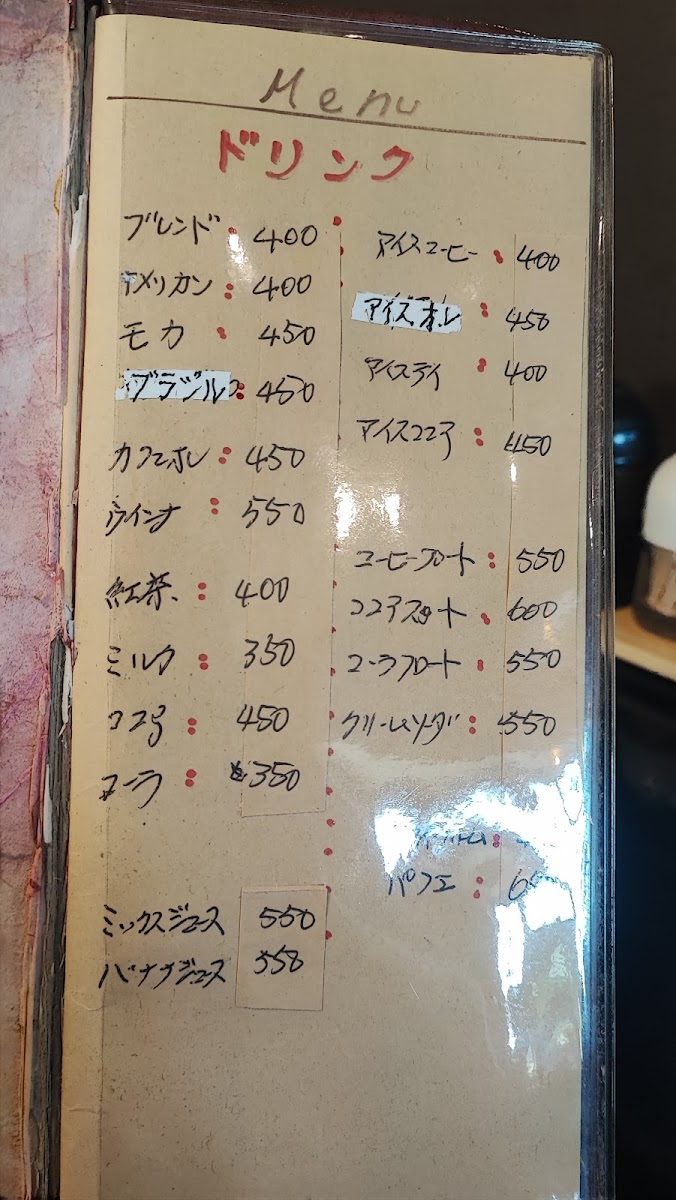 Menu
ドリンク
ブレンド : 400
アメリカン : 400
モカ : 450
ブラジル : 450
カフェオレ : 450
ウインナ : 550
紅茶 : 400
ミルク : 350
ココア : 450
コーラ : 350
ミックスジュース 550
バナナジュース 550
アイスコーヒー : 400
アイスオレ : 450
アイスティ : 400
アイスココア : 450
コーヒーフロート : 550
ココアフロート : 600
コーラフロート : 550
クリームソーダ : 550
パフェ :